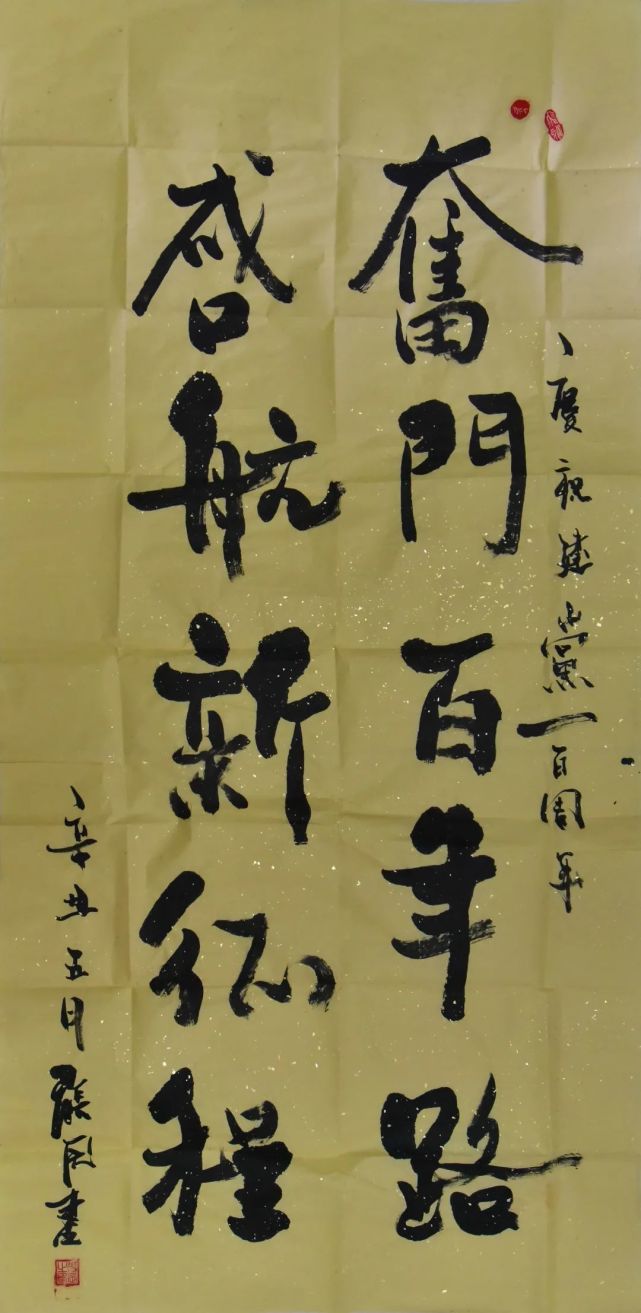 慶祝建黨一百周年
奮鬥百年路
啓航新征程
辛丑五月書